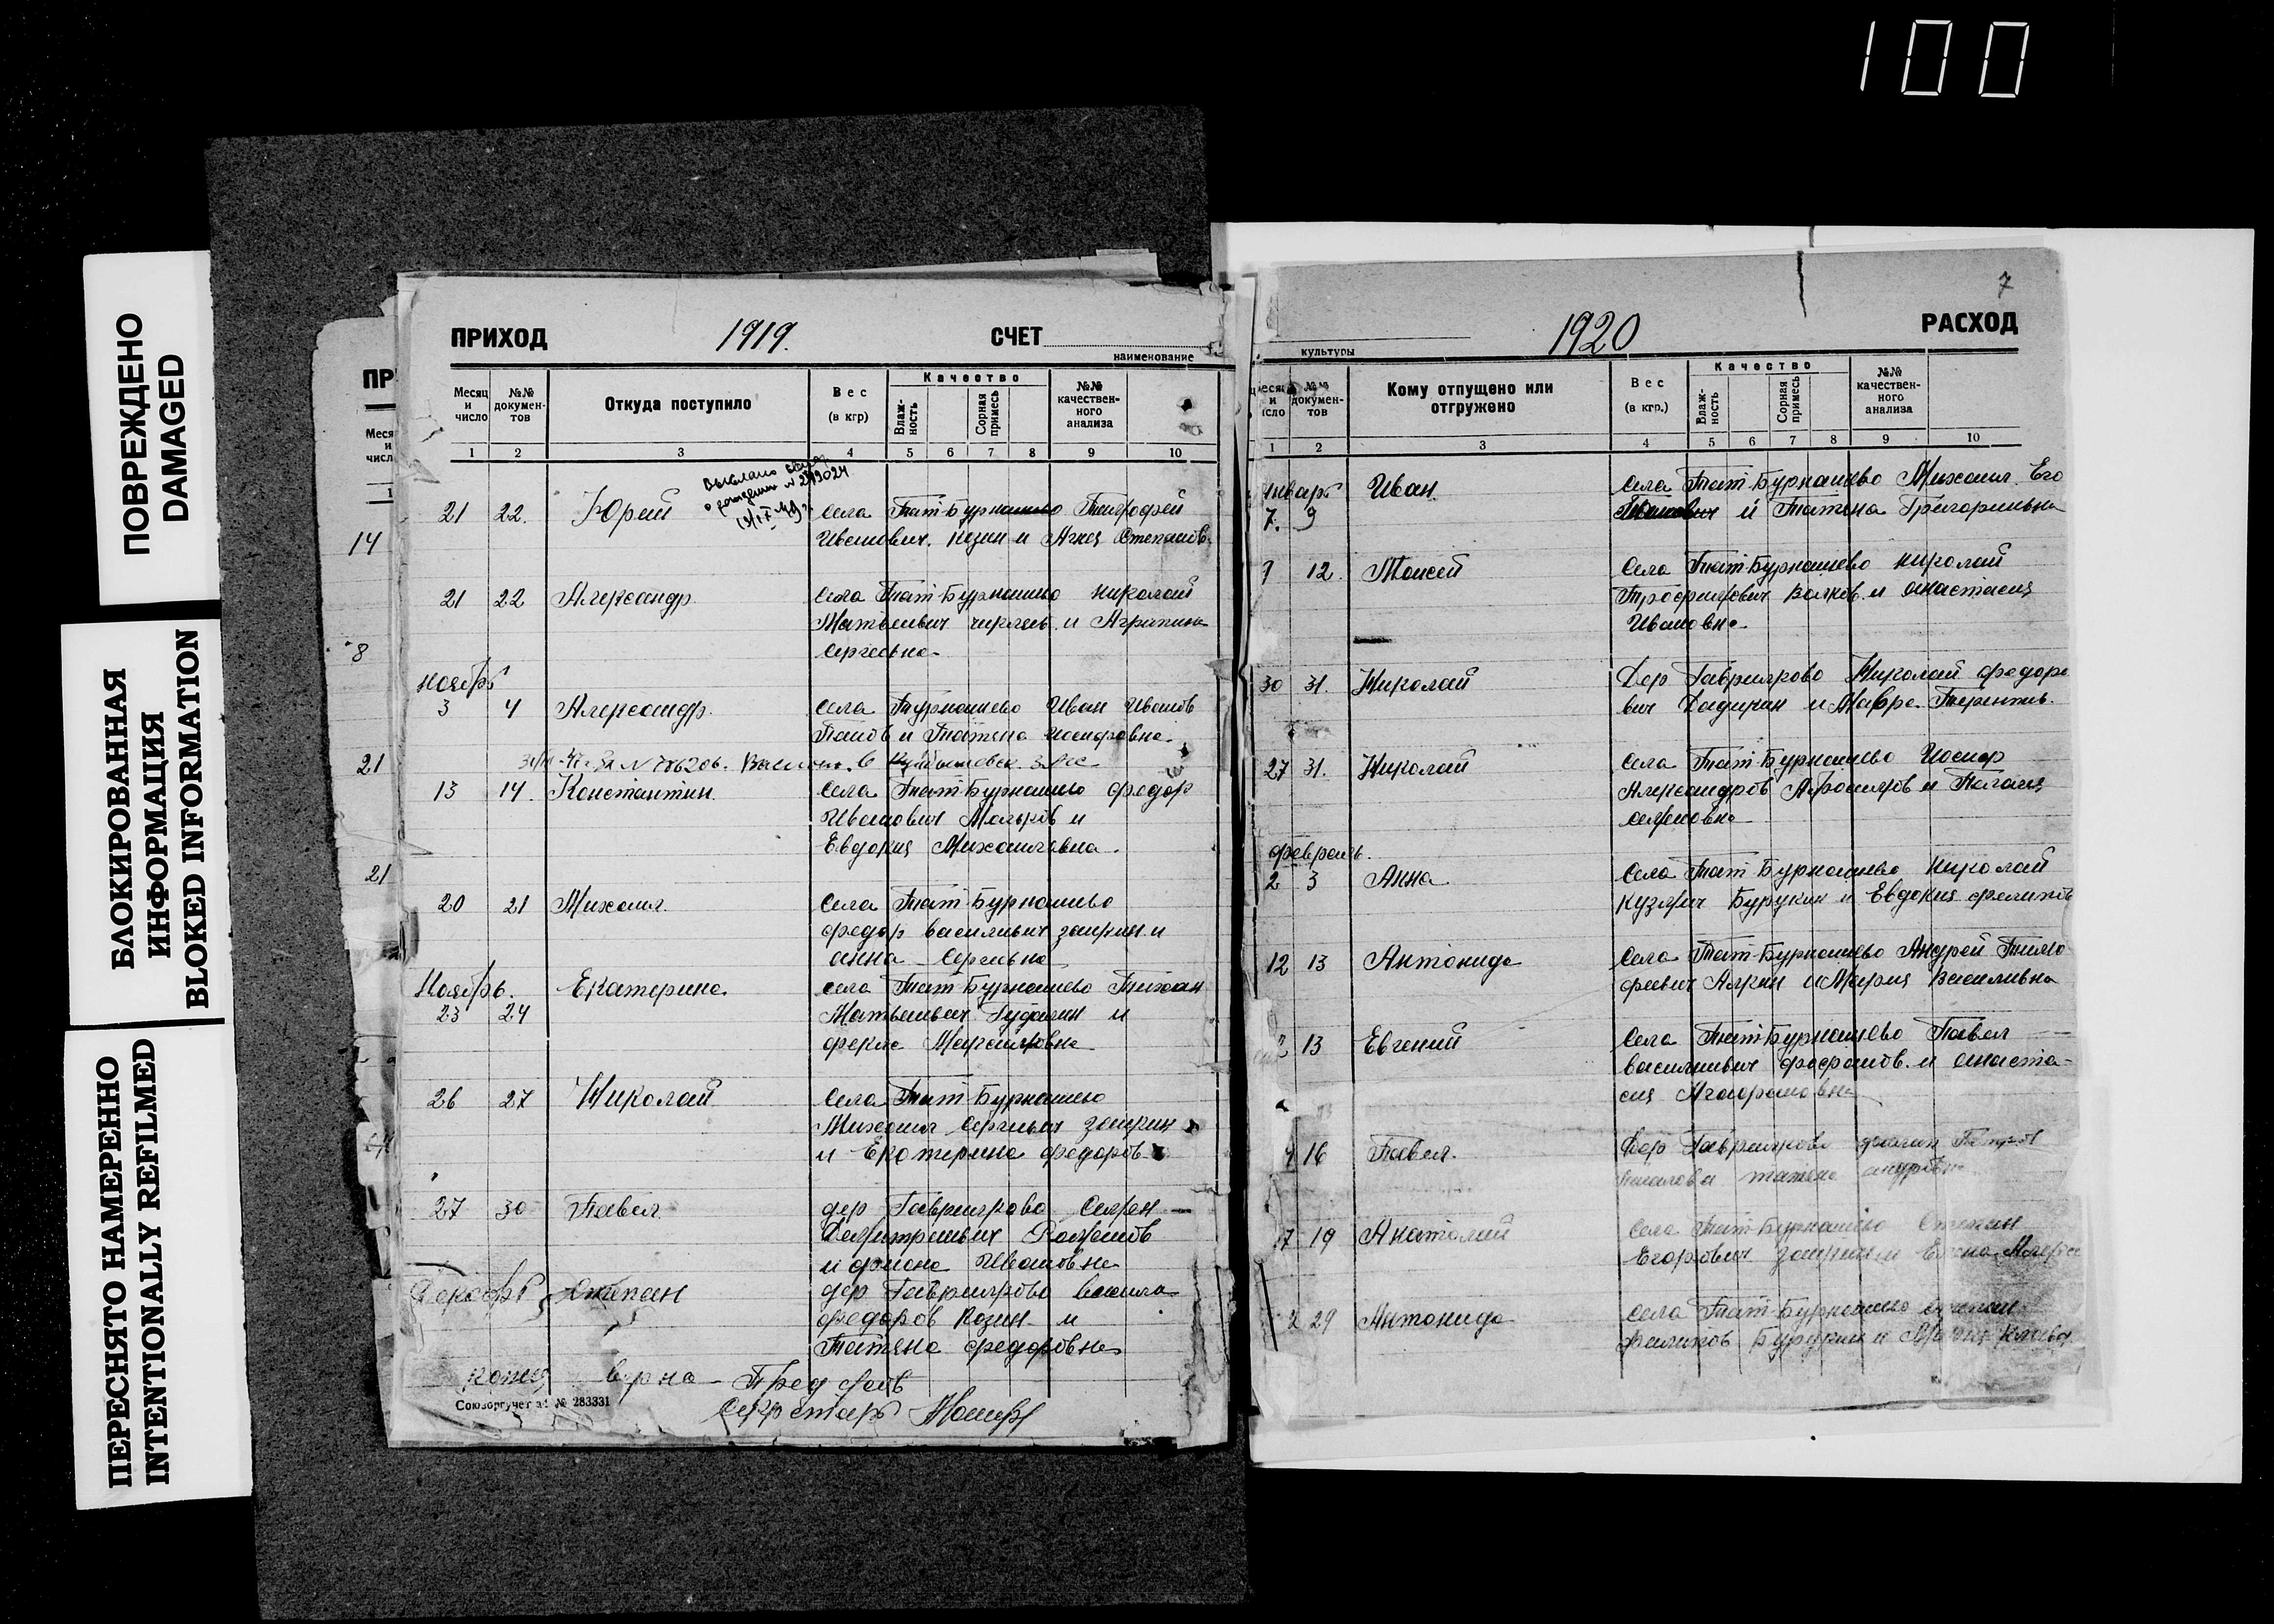 100
ПОВРЕЖДЕНО
DAMAGED
БЛОКИРОВАННАЯ
ИНФОРМАЦИЯ
BLOKED INFORMATION
ПЕРЕСНЯТО НАМЕРЕННО
INTENTIONALLY REFILMED
ПР
Меся
и
числ
1
14
8
21
21
ПРИХОД 1919. СЧЕТ
наименование
Месяц и число
№№ докумен-тов
Откуда поступило
Вес (в кгр)
Качество
Влаж-ность
Сорная примесь
№№ качествен-ного анализа
1 2 3 4 5 6 7 8 9 10
выслано
о рождении № 249024
21 22. Юрий села Тат-Бурнашево Тимофей
Иванович. Козин и Агнея Степанов
21 22 Александр села Тат-Бурнашево Николай
Матвеевич и Агрипина
Сергеевна
Ноябрь
3 4 Александр села Бурнашево Иван Иванов
Панов и Татяна Иосифовна.
№ 786206.
13 14. Константин села Тат-Бурнашево Федор
Иванович Мальков и
Евдокия Михаиловна.
20 21 Михаил. села Тат-Бурнашево
Федор Василивич Заикин и
Анна Сергевна
Ноябрь. Екатерина села Тат-Бурнашево Тихан
23 24 Матвеевич Гудалин и
Фекла Максимовна
26 27 Николай села Тат-Бурнашево
Михаил Сергевич Заикин
и Екатерина Федоров
27 30 Павел дер Гаврилково Семен
Дмитриевич Романов
и Фиона Ивановна
Декабрь Степан дер Гаврилково Васила
Федоров Козин и
Татяна Федоровна
Копия верна - Пред
Секретарь
Союзоргучет № 283331
7
1920 РАСХОД
культуры
месяц и число
№№ докумен-тов
Кому отпущено или отгружено
Вес (в кгр.)
Качество
Влаж-ность
Сорная примесь
№№ качествен-ного анализа
1 2 3 4 5 6 7 8 9 10
Январь Иван. села Тат-Бурнашево Михаил Его
7. 9 и Татяна Григорьевна
9 12. Моисей села Тат-Бурнашево Николай
Трофимович Волков и Анастасия
Ивановна
30 31. Николай Дер Гаврилково Николай Федоро
вич Дадукин и Мавра Терентив.
27 31. Николай села Тат-Бурнашево Иосиф
Александров Афонимов и Пелагия
Семеновна
Февраль.
2 3 Анна села Тат-Бурнашево Николай
Кузмич Бурукин и Евдокия Филипов
12 13 Антонида села Тат-Бурнашево Андрей Тимо
феевич Алкин и Мария Василивна
13 Евгений села Тат-Бурнашево Павел
Василивич Фофанов. и Анаста-
сия Агафоновна
16 Павел. Дер Гаврилково
19 Анатолий села Тат-Бурнашево Степан
Егорович Заикин и
29 Антонида села Тат-Бурнашево Степан
Филипов Бурукин и